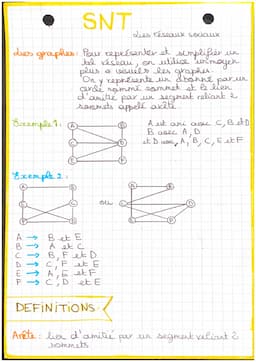 SNT
Les réseaux sociaux
Les graphes: Pour représenter et simplifier un
tel réseau, on utilise un moyen
plus visuel: les graphes.
On y représente un abonné par un
cercle nommé sommet et le lien
d'amitié par un segment reliant 2
sommets appelé arête.
Exemple 1:
A est ami avec C, B et D
B avec A, D
et D avec A, B, C, E et F
Exemple 2:
ou
A → B et E
B → A et C
C → B, F et D
D → C, F et E
E → A, E et F
F → C, D et E
DEFINITIONS
Arête: lien d'amitié par un segment reliant 2
sommets